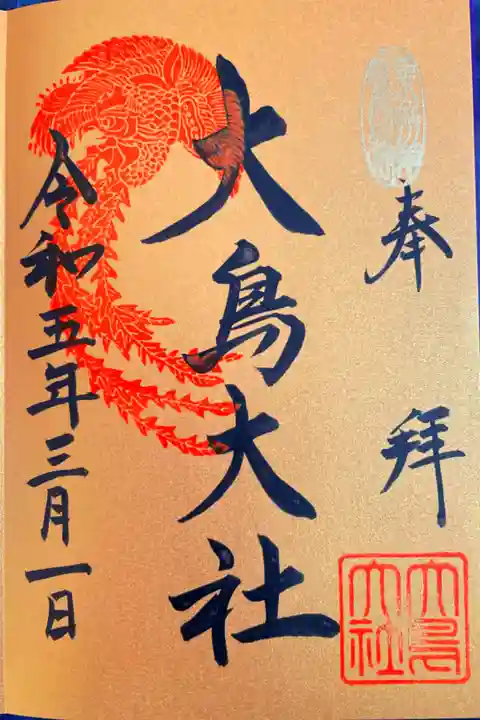 奉拝
大鳥大社
令和五年三月一日
大鳥大社